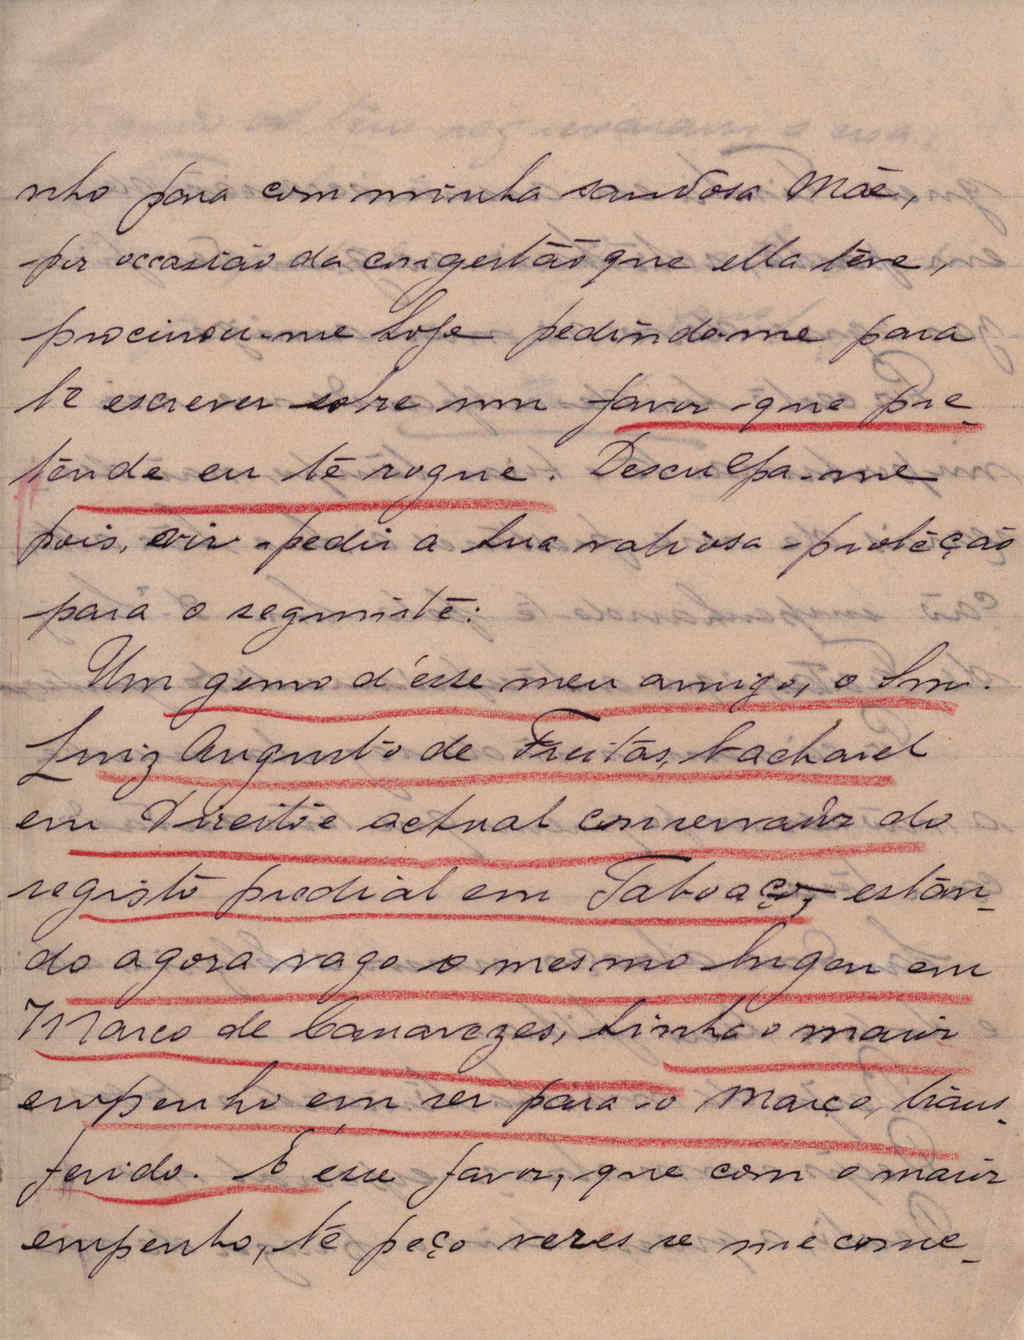 nho para com minha saudosa Mãe,
por occasião da congestão que ella teve,
procurou-me hoje pedindo-me para
te escrever sobre um favor que pre-
tende eu te rogue. Desculpa-me
pois, vir pedir a tua valiosa proteção
para o seguinte:
Um genro d'esse meu amigo, o Snr.
Luiz Augusto de Freitas, bacharel
em Direito e actual conservador do
registo predial em Taboaço, estan-
do agora vago o mesmo lugar em
Marco de Canavezes, tinha o maior
empenho em ser para o Marco, trans-
ferido. É esse favor, que com o maior
empenho, te peço veres se me conse-